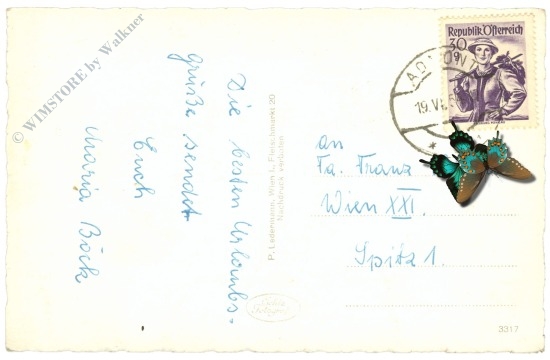 © WIMSTORE by Walkner
Die besten Urlaubs-
grüße sendet
Euch
Maria Böck
P. Ledermann, Wien I., Fleischmarkt 20
Nachdruck verboten
Republik Österreich
30
g
19.VI.
an
Fa. Franz
Wien XXI.
Spitz 1.
3317